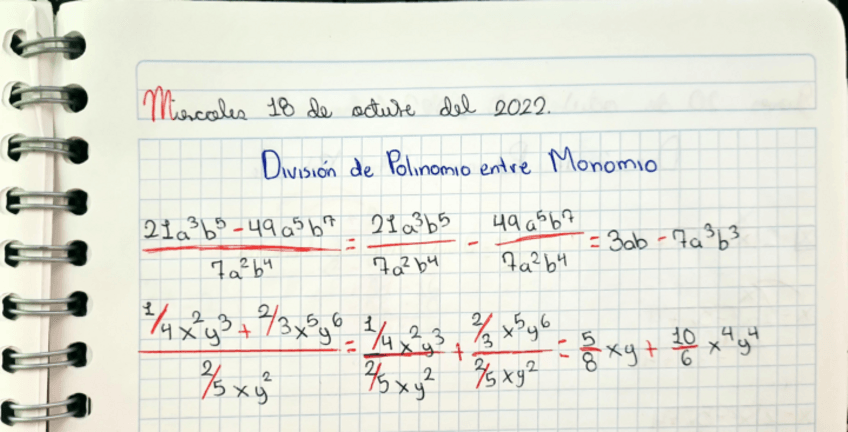 Miercoles 18 de octubre del 2022.
División de Polinomio entre Monomio
(21a³b⁵ - 49a⁵b⁷)/(7a²b⁴) = 21a³b⁵/(7a²b⁴) - 49a⁵b⁷/(7a²b⁴) = 3ab - 7a³b³
(1/4x²y³ + 2/3x⁵y⁶)/(2/5xy²) = (1/4x²y³)/(2/5xy²) + (2/3x⁵y⁶)/(2/5xy²) = 5/8xy + 10/6x⁴y⁴